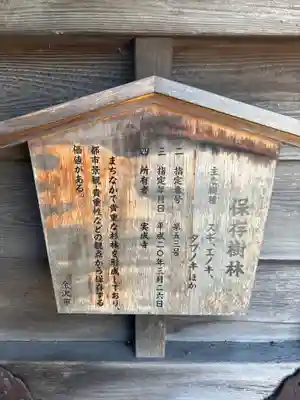 保存樹林
一 主な樹種 スギ、エノキ、
タブノキ ほか
二 指定番号 第五三号
三 指定年月日 平成二〇年三月二六日
四 所有者 実成寺
まちなかで貴重な杉林を形成しており、
都市景観・貴重性などの観点から保存する
価値がある。
金沢市